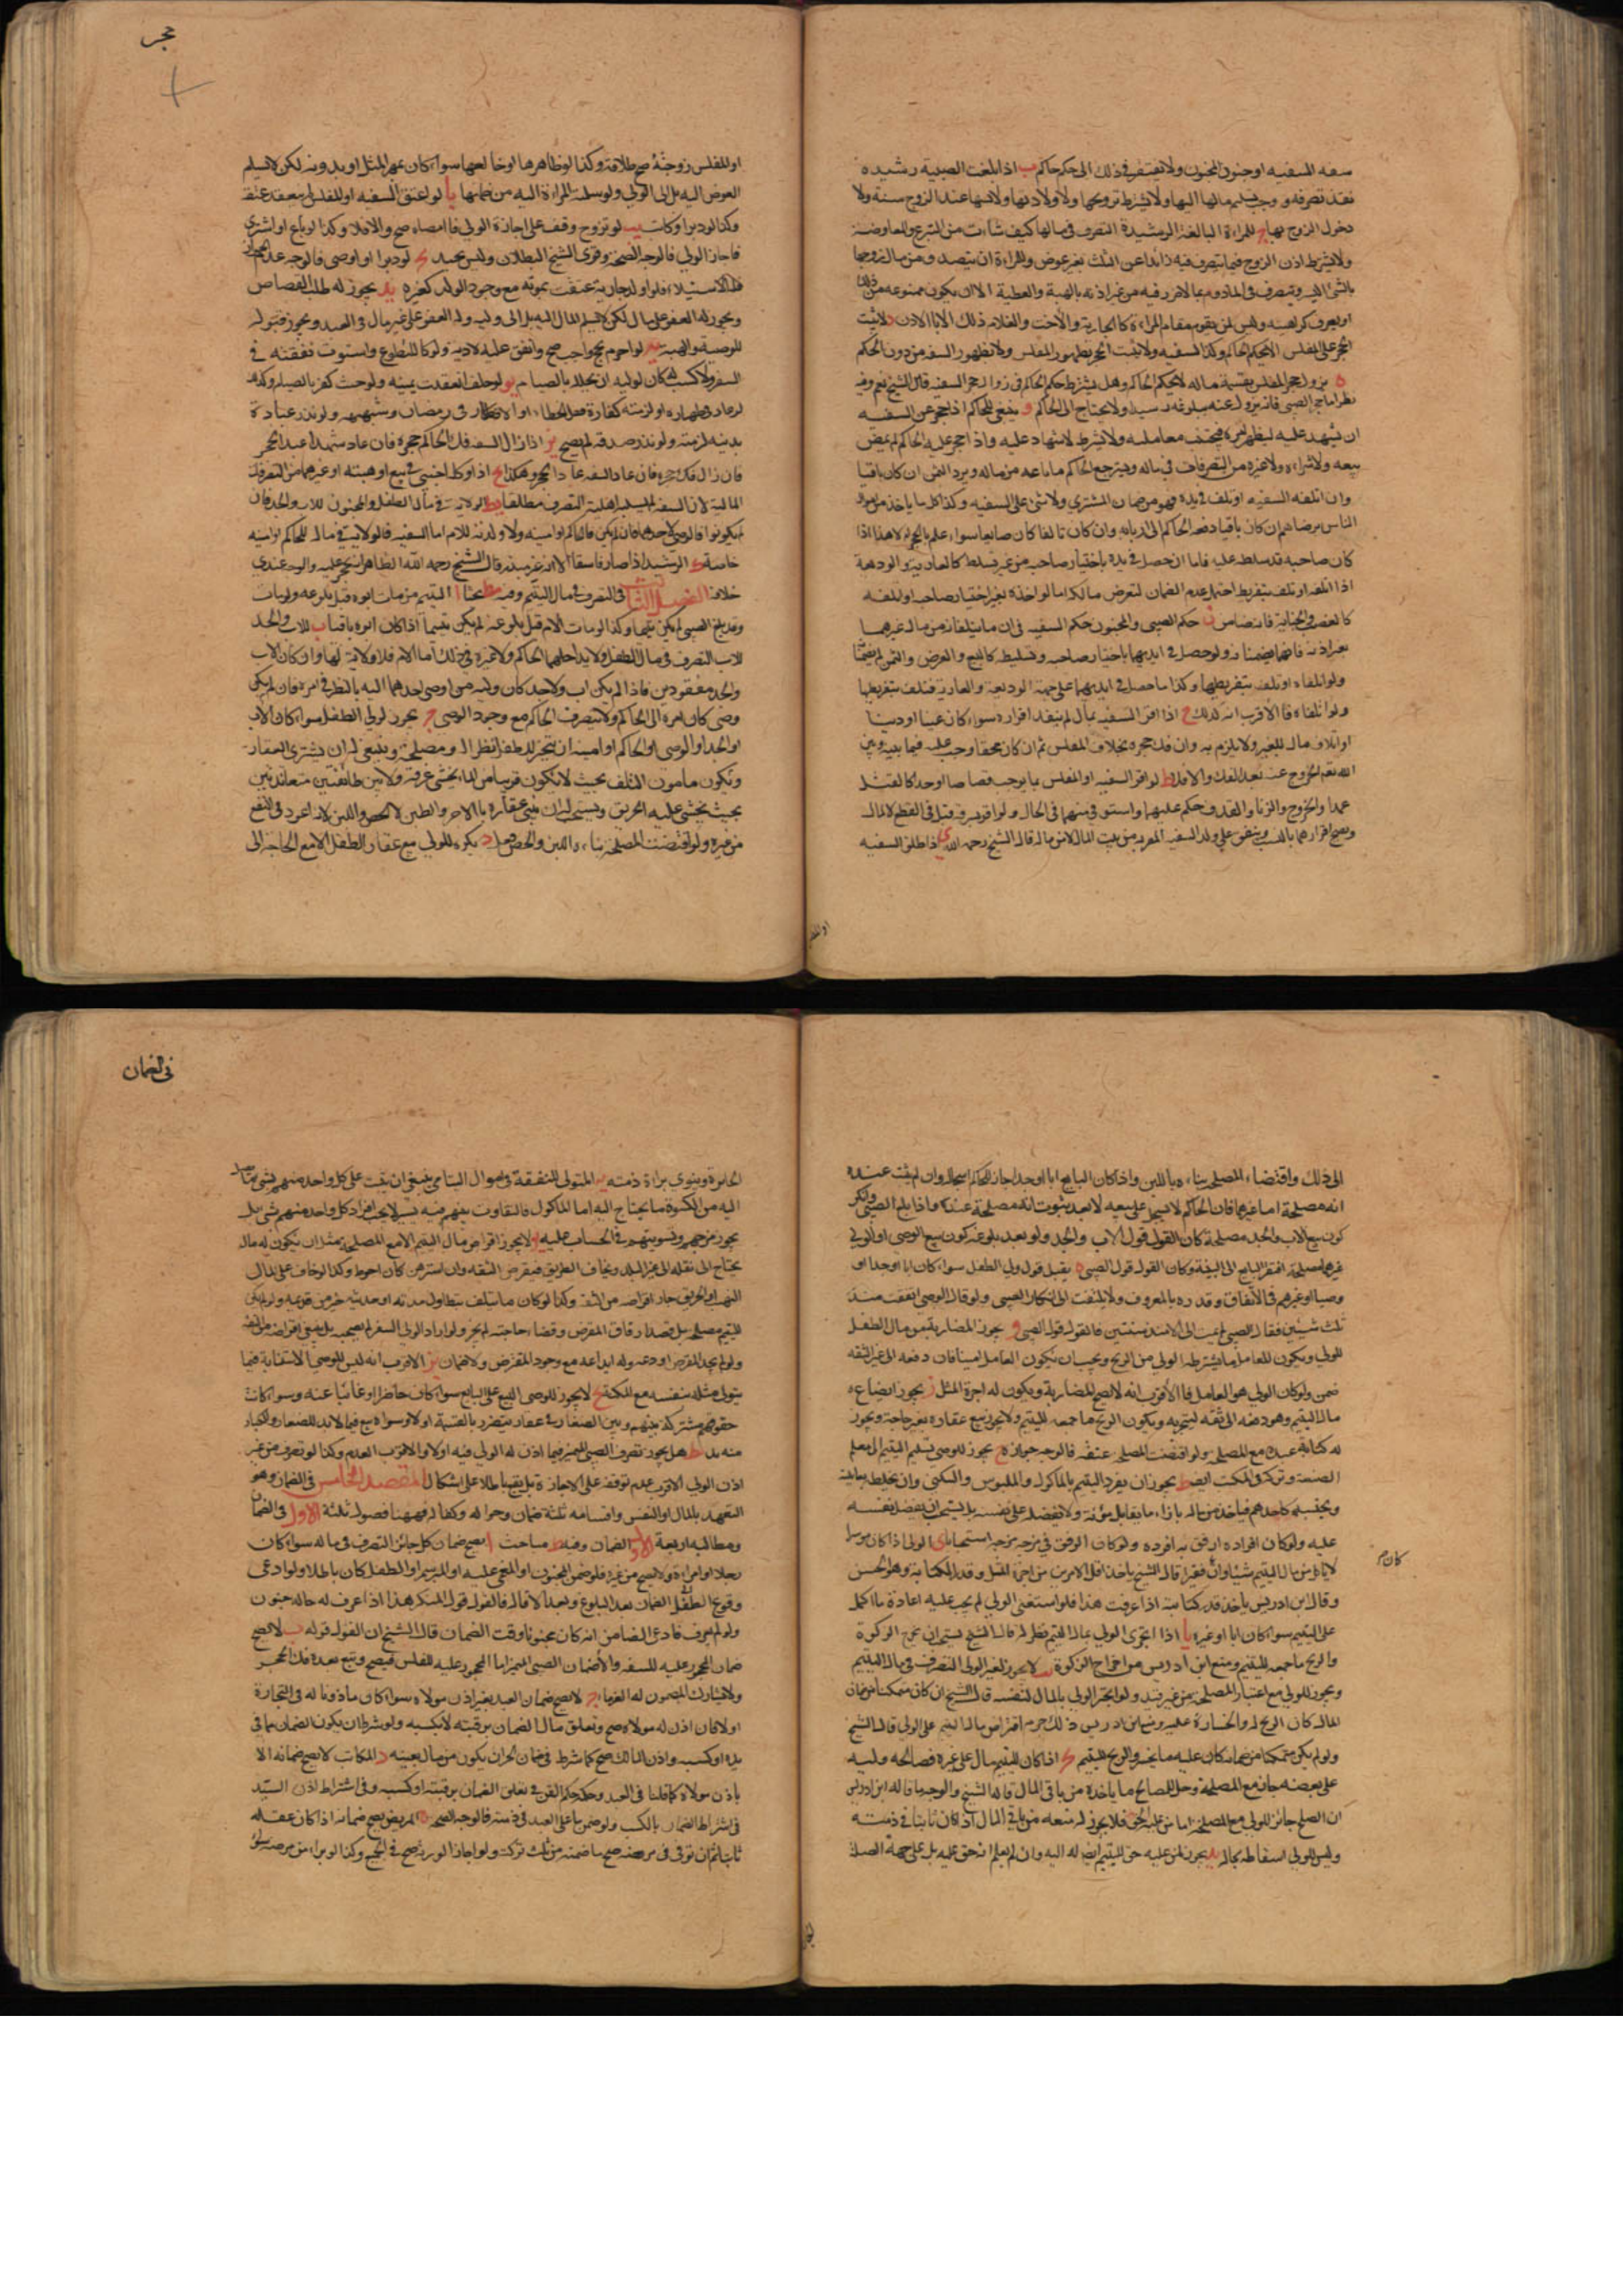 سفه السفيه او جنون المجنون ولا يفتقر في ذلك الى حكم حاكم ب اذا بلغت الصبية رشيدة
نفذ تصرفها ووجب تسليم مالها اليها ولا يشترط تزويجها ولا ولادتها ولا لبثها عند الزوج سنة ولا
دخول الزوج بها ج للمراة البالغة الرشيدة التصرف في مالها كيف شاءت من التبرع والمعاوضة
ولا يشترط اذن الزوج فيما يتصرف فيه زائدا عن الثلث بغير عوض وللمراة ان تتصدق من مال زوجها
بالشئ اليسير وتتصرف في المادوم بما لا ضرر فيه من غير اذنه بالهبة والعطية الا ان يكون ممنوعة من ذلك
او يعرف كراهيته وليس لمن يقوم مقام المراة كالجارية والاخت والغلام ذلك الا بالاذن د لا يثبت
الحجر على المفلس الا بحكم الحاكم وكذا السفيه ولا يثبت الحجر بظهور المفلس ولا بظهور السفه من دون الحكم
ه يزول حجر المفلس بقسمة ماله لا بحكم الحاكم وهل يشترط حكم الحاكم في زوال حجر السفيه قال الشيخ نعم وفيه
نظر اما حجر الصبي فانه يزول عنه ببلوغه رشيدا ولا يحتاج الى الحاكم و ينبغي للحاكم اذا حجر عن السفيه
ان يشهد عليه ليظهر امره فيجتنب معاملته ولا يشترط الاشهاد عليه واذا حجر عليه الحاكم لم يمض
بيعه ولا شراءه ولا غيره من التصرفات في ماله ويسترجع الحاكم ما باعه من ماله ويرد الثمن ان كان باقيا
وان اتلفه السفيه او تلف في يده فهو من ضمان المشتري ولا شئ على السفيه وكذا كل ما ياخذ من اموال
الناس برضاهم ان كان باقيا دفعه الحاكم الى اربابه وان كان تالفا كان ضايعا سواء علم بالحجر او لا هذا اذا
كان صاحبه قد سلط عليه فاما ان حصل في يده باختيار صاحبه من غير تسليط كالعارية والوديعة
اذا اتلفه او تلف بتفريط احتمل عدم الضمان لتعرض مالكه اما لو اخذه بغير اختيار صاحبه او اتلفه
كالغصب والجناية فانه ضامن ز حكم الصبي والمجنون حكم السفيه في ان ما يتلفانه من مال غيرهما
بغير اذنه فانهما يضمنانه ولو حصل في ايديهما باختيار صاحبه وتسليط كالبيع والقرض والثمن لم يضمنا
ولو اتلفاه او تلف بتفريطهما وكذا ما حصل في ايديهما على جهة الوديعة والعارية فتلف بتفريطهما
ولو اتلفاه فالاقرب انه كذلك ح اذا اقر السفيه بمال لم ينفذ اقراره سواء كان عينا او دينا
او اتلاف مال للغير ولا يلزم به وان فك حجره بخلاف المفلس ثم ان كان محقا وجب عليه فيما بينه وبين
الله تعالى الخروج عنه بعد الفك والا فلا ط لو اقر السفيه او المفلس بما يوجب قصاصا او حدا كالقتل
عمدا والجروح والزنا والقذف حكم عليهما واستوفي منهما في الحال ولو اقر بسرقة قبل في القطع لا المال
ويصح اقرارهما بالنسب وينفق على ولد السفيه المقر به من بيت المال لا من ماله قاله الشيخ رحمه الله ي اذا طلق السفيه
حجر
او المفلس زوجته صح طلاقه وكذا لو ظاهرها او خالعها سواء كان بمهر المثل او بدونه لكن لا يسلم
العوض اليه بل الى الولي ولو سلمته المراة اليه من ضمانها يا لو اعتق السفيه او المفلس لم ينعقد عتقه
وكذا لو دبر او كاتب يب لو تزوج وقف على اجازة الولي فان امضاه صح والا فلا وكذا لو باع او اشترى
فاجاز الولي فالوجه الصحة وقوى الشيخ البطلان وليس بجيد يج لو دبر او اوصى فالوجه عدم الجواز
فله الاستيلاد فلو اولد جارية عتقت بموته مع وجود الولد كغيره يد يجوز له طلب القصاص
ويجوز له العفو على مال لكن لا يسلم المال اليه بل الى وليه وله العفو على غير مال في العمد ويجوز قبوله
للوصية والهبة يه لو احرم بحج واجب صح وانفق عليه لاديه ولو كان للتطوع واستوت نفقته في
السفر ولا كسب له كان لوليه ان يحلله بالصيام يو لو حلف انعقدت يمينه ولو حنث كفر بالصيام وكذا
لو عاد في ظهاره او لزمته كفارة قتل الخطاء او الافطار في رمضان وشبهه ولو نذر عبادة
بدنية لزمته ولو نذر صدقة لم يصح يز اذا زال السفه فك الحاكم حجره فان عاد سفها اعيد الحجر
فان زال فك حجره فان عاد السفه عاد الحجر وهكذا يح اذا وكله اجنبي في بيع او هبته او غيرهما من التصرفات
المالية لان السفه لم يسلبه اهلية التصرف مطلقا يط الولاية في مال الطفل والمجنون للاب والجد فان
لم يكونوا فالوصي لاحدهما فان لم يكن فالحاكم او امينه ولا ولاية للام اما السفيه فالولاية في ماله للحاكم او امينه
خاصة ك الرشيد اذا صار فاسقا الا انه غير مبذر قال الشيخ رحمه الله الظاهر انه يحجر عليه والوجه عندي
خلافه الفصل الثالث في التصرف في مال اليتيم وفيه ط بحثا ا اليتيم من مات ابوه قبل بلوغه ولو مات
وقد بلغ الصبي لم يكن يتيما وكذا لو مات الام قبل بلوغه لم يكن يتيما اذا كان ابوه باقيا ب للاب والجد
للاب التصرف في مال الطفل ولا يداخلهما الحاكم ولا غيره في ذلك اما الام فلا ولاية لها وان كان الاب
والجد مفقودين فاذا لم يكن اب ولا جد كان وليه من اوصى احدهما اليه بالنظر في امره فان لم يكن
وصي كان امره الى الحاكم ولا يتصرف الحاكم مع وجود الوصي ج يجوز لولي الطفل سواء كان الاب
او الجد او الوصي او الحاكم او امينه ان يتجر للطفل نظرا له ومصلحة وينبغي له ان يشتري العقار
ويكون مامون التلف بحيث لا يكون قريبا من الماء يخشى غرقه ولا بين طائفتين متعاندتين
بحيث يخشى عليه الحريق ويستحب ان يبني عقاره بالاجر والطين لا الجص واللبن لانه اعود في النفع
من غيره ولو اقتضت المصلحة بناءه باللبن والجص فعل د يكره للولي بيع عقار الطفل الا مع الحاجة الى
او المفلس
الى ذلك واقتضاء المصلحة بناءه باللبن واذا كان البايع ابا او جدا جاز للحاكم اسجاله وان لم يثبت عنده
انه مصلحة اما غيرهما فان الحاكم لا يسجل على بيعه الا بعد ثبوت انه مصلحة عنده واذا بلغ الصبي وانكر
كون بيع الاب والجد مصلحة كان القول قول الاب والجد ولو بعد بلوغه كون بيع الوصي او الولي
غيرهما مصلحة افتقر البايع الى البينة وكان القول قول الصبي ه يقبل قول ولي الطفل سواء كان ابا او جدا او
وصيا او غيرهم في الانفاق وقدره بالمعروف ولا يلتفت الى انكار الصبي ولو قال الوصي انفقت منذ
ثلث سنين فقال الصبي لم يمت ابي الا منذ سنتين فالقول قول الصبي و يجوز المضاربة من مال الطفل
للولي ويكون للعامل ما يشترطه الولي من الربح ويجب ان يكون العامل امينا فان دفعه الى غير الثقة
ضمن ولو كان الولي هو العامل فالاقرب انه لا يصح للمضاربة ويكون له اجرة المثل ز يجوز ابضاع
مال اليتيم وهو دفعه الى ثقة ليتجر به ويكون الربح باجمعه لليتيم ولا يجوز بيع عقاره بغير حاجة ويجوز
له كتابة عبده مع المصلحة ولو اقتضت المصلحة عتقه فالوجه جوازه ح يجوز للوصي تسليم اليتيم الى معلم
الصنعة وتركه في المكتب ايضا ط يجوز ان يفرد اليتيم بالماكول والملبوس والسكنى وان يخلطه بعائلته
ويحتسبه كاحدهم فياخذ من ماله بازاء ما يقابل مؤنته ولا يفضله على نفسه بل يستحب ان يفضل نفسه
عليه ولو كان افراده ارفق به افرده ولو كان الرفق في مزجه مزجه استحبابا ي الولي اذا كان موسرا
لا ياكل من مال اليتيم شيئا وان كان فقيرا قال الشيخ ياخذ اقل الامرين من اجرة المثل وقدر الكفاية وهو الحسن
كان صح
وقال ابن ادريس ياخذ قدر كفايته اذا عرفت هذا فلو استغنى الولي لم يجب عليه اعادة ما اكل
على اليتيم سواء كان ابا او غيره يا اذا اتجر الولي بمال اليتيم نظرا له قال الشيخ يستحب ان يخرج الزكوة
والربح باجمعه لليتيم ومنع ابن ادريس من اخراج الزكوة يب لا يجوز لغير الولي التصرف في مال اليتيم
ويجوز للولي مع اعتبار المصلحة من غير قيد ولو اتجر الولي بالمال لنفسه قال الشيخ ان كان متمكنا من ضمان
المال كان الربح له والخسارة عليه ومنع ابن ادريس ذلك وحرم اقتراض مال اليتيم على الولي قال الشيخ
ولو لم يكن متمكنا من ضمانه كان عليه ما يخسر والربح لليتيم يج اذا كان لليتيم مال على غيره فصالحه وليه
على بعضه جاز مع المصلحة وحل للصالح ما ياخذه من باقي المال قاله الشيخ والوجه ما قاله ابن ادريس
ان الصلح جائز للولي مع المصلحة اما من عليه الحق فلا يجوز له منعه من باقي المال اذا كان ثابتا في ذمته
وليس للولي اسقاطه بحال يد يجوز لمن عليه حق لليتيم ايصاله اليه وان لم يعلم انه حق عليه بل على جهة الصلة
في الضمان
الجائزة وينوي براءة ذمته يه المتولي للنفقة في اموال اليتامى ينبغي ان يثبت على كل واحد منهم بشئ
اليه من الكسوة ما يحتاج اليه اما الماكول فالتفاوت بينهم فيه يسير لا يجب افراد كل واحد منهم بشئ بل
يجوز مزجهم وتسويتهم في الحساب عليه يو لا يجوز اقراض مال اليتيم الا مع المصلحة مثل ان يكون له مال
يحتاج الى نقله الى غير البلد ويخاف الطريق فيقرض الثقة وان استرهن كان احوط وكذا لو خاف على المال
النهب او الحريق جاز اقراضه من الثقة وكذا لو كان مما يتلف بتطاول مدته او حديثه خير من قديمه ولو لم يكن
لليتيم مصلحة بل قصد ارفاق المقرض وقضاء حاجته لم يجز ولو اراد الولي السفر لم يصحبه بل ينبغي اقراضه من الثقة
ولو لم يجد المقرض اودعه وله ايداعه مع وجود المقترض ولا ضمان يز الاقرب انه ليس للوصي الاستنابة فيما
يتولى مثله بنفسه مع المكنة يح لا يجوز للوصي البيع على البالغ سواء كان حاضرا او غائبا عنه وسواء كانت
حقوقهم مشتركة بينهم وبين الصغار في عقار يتضرر بالقسمة او لا وسواء بيع فيما لا بد للصغار والكبار
منه بد ط هل يجوز تصرف الصبي المميز فيما اذن له الولي فيه او لا والاقرب العدم وكذا لو تصرف من غير
اذن الولي الاقرب عدم توقفه على الاجازة بل يقع باطلا على اشكال المقصد الخامس في الضمان وهو
التعهد بالمال او النفس واقسامه ثلثة ضمان وحوالة وكفالة فههنا فصول ثلثة الاول في الضمان
ومطالبه اربعة الاول الضمان وفيه ط مباحث ا يصح ضمان كل جائز التصرف في ماله سواء كان
رجلا او امراة ولا يصح من غيره فلو ضمن المجنون او المغمى عليه او المبرسم او الطفل كان باطلا ولو ادعى
وقوع الطفل الضمان بعد البلوغ وبعد الاقالة فالقول قول المنكر هذا اذا عرف له حالة جنون
ولو لم يعرف فادعى الضامن انه كان مجنونا وقت الضمان قال الشيخ ان القول قوله ب لا يصح
ضمان المحجور عليه للسفه ولا ضمان الصبي المميز اما المحجور عليه للفلس فيصح ويتبع بعد فك الحجر
ولا يشارك المضمون له الغرماء ج لا يصح ضمان العبد بغير اذن مولاه سواء كان ماذونا له في التجارة
او لا فان اذن له مولاه صح وتعلق مال الضمان برقبته لا بكسبه ولو شرط ان يكون الضمان مما في
يده او كسبه واذن المالك صح كما شرط في ضمان الحر ان يكون من مال بعينه د المكاتب لا يصح ضمانه الا
باذن مولاه كما قلنا في العبد وحكمه حكم القن في تعلق الضمان برقبته او كسبه وفي اشتراط اذن السيد
في اشتراط الضمان بالكسب ولو ضمن ما على العبد في ذمته فالوجه الصحة ه المريض يصح ضمانه اذا كان عقله
ثابتا ثم ان توفي في مرضه صح ما ضمنه من ثلث تركته ولو اجاز الورثة صح في الجميع وكذا لو برا من مرضه